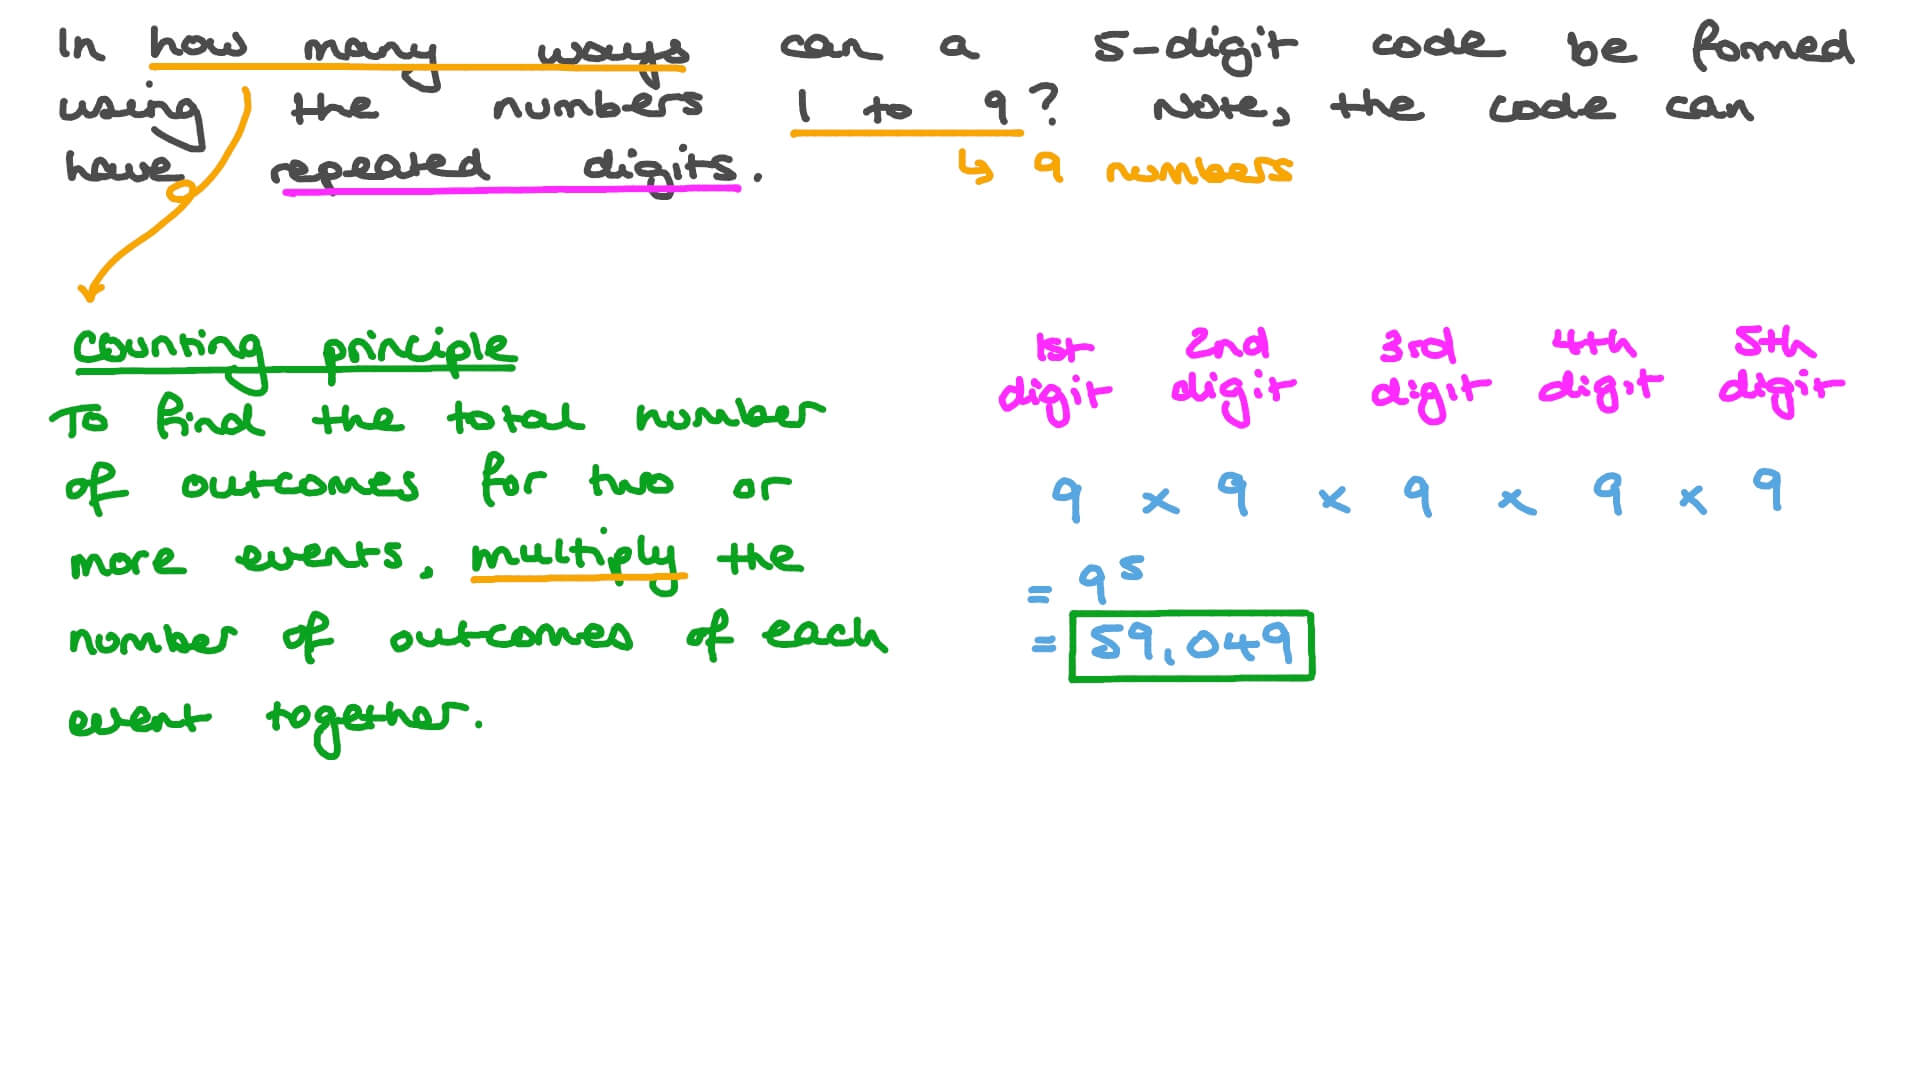 In how many ways can a 5-digit code be formed
using the numbers 1 to 9? Note, the code can
have repeated digits.
↳ 9 numbers
Counting principle
To find the total number
of outcomes for two or
more events, multiply the
number of outcomes of each
event together.
1st digit 2nd digit 3rd digit 4th digit 5th digit
9 × 9 × 9 × 9 × 9
= 9⁵
= 59,049